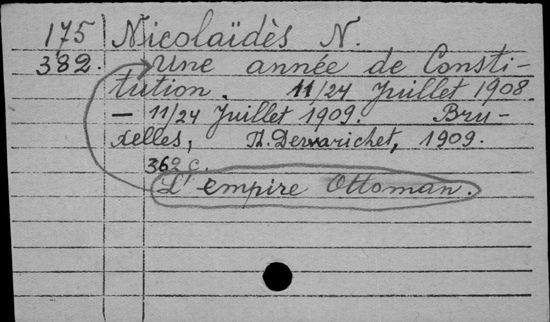 175 Nicolaïdès N.
382. Une année de Consti-
tution. 11/24 Juillet 1908
— 11/24 Juillet 1909. Bru-
xelles, Th. Dewarichet, 1909.
362 c.
L'empire Ottoman.